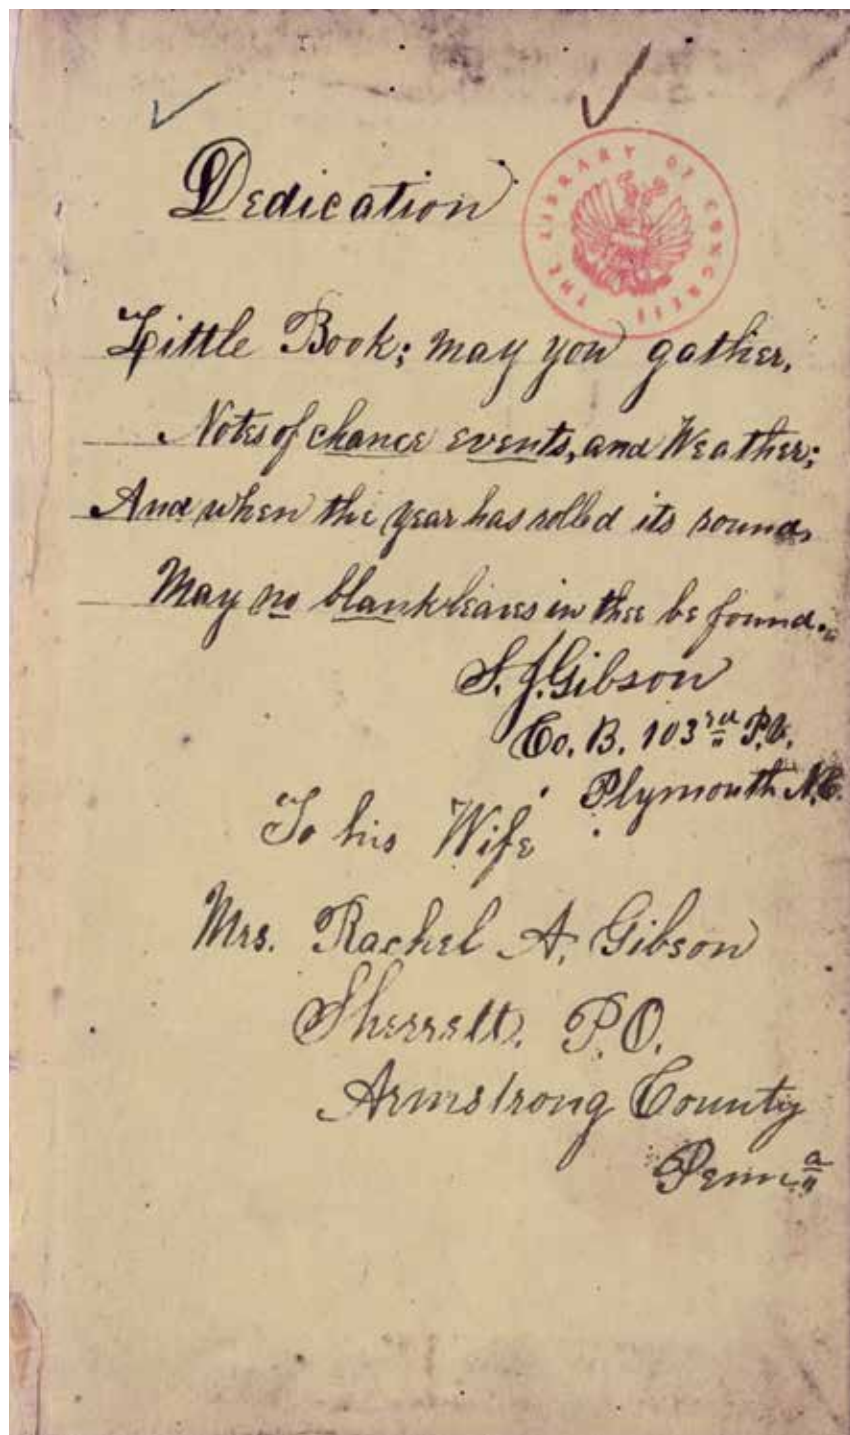 Dedication
THE LIBRARY OF CONGRESS
Little Book; may you gather,
Notes of chance events, and Weather;
And when the year has rolled its round,
May no blank leaves in thee be found.
S. J. Gibson
Co. B. 103rd P.V.
Plymouth N.C.
To his Wife
Mrs. Rachel A. Gibson
Sherrett. P.O.
Armstrong County
Penna